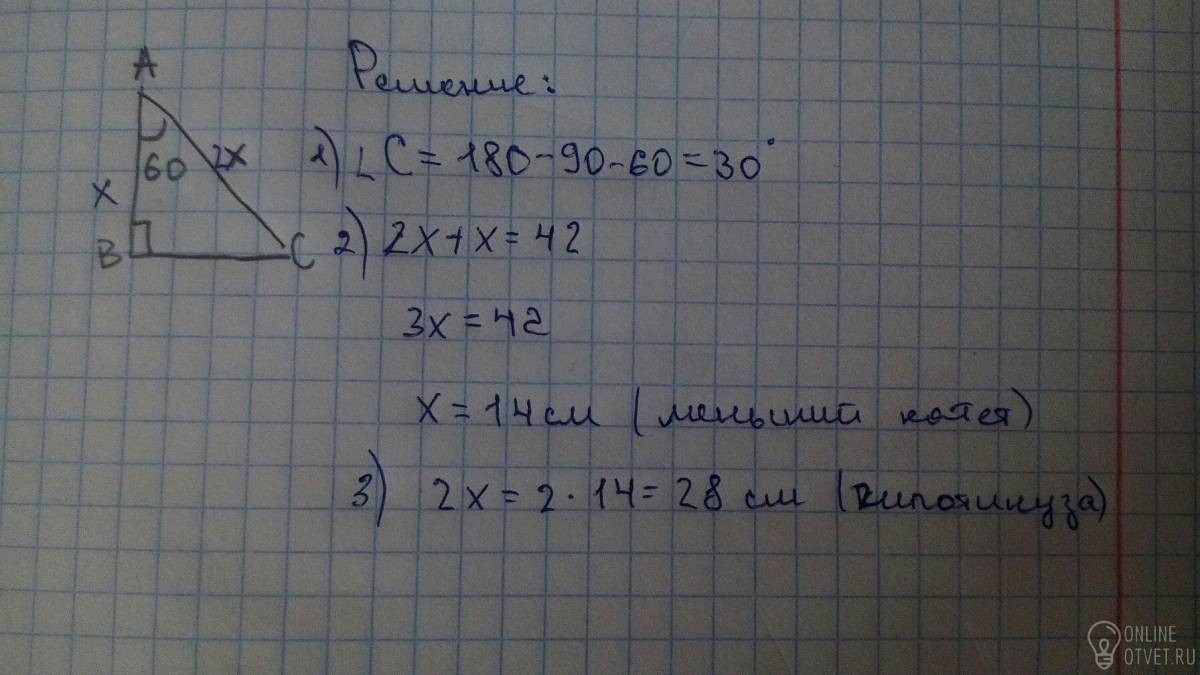 A
60
2x
x
B
C
Решение:
1) ∠C = 180-90-60=30°
2) 2x+x=42
3x=42
x=14см (меньший катет)
3) 2x=2·14=28 см (гипотинуза)
ONLINE
OTVET.RU